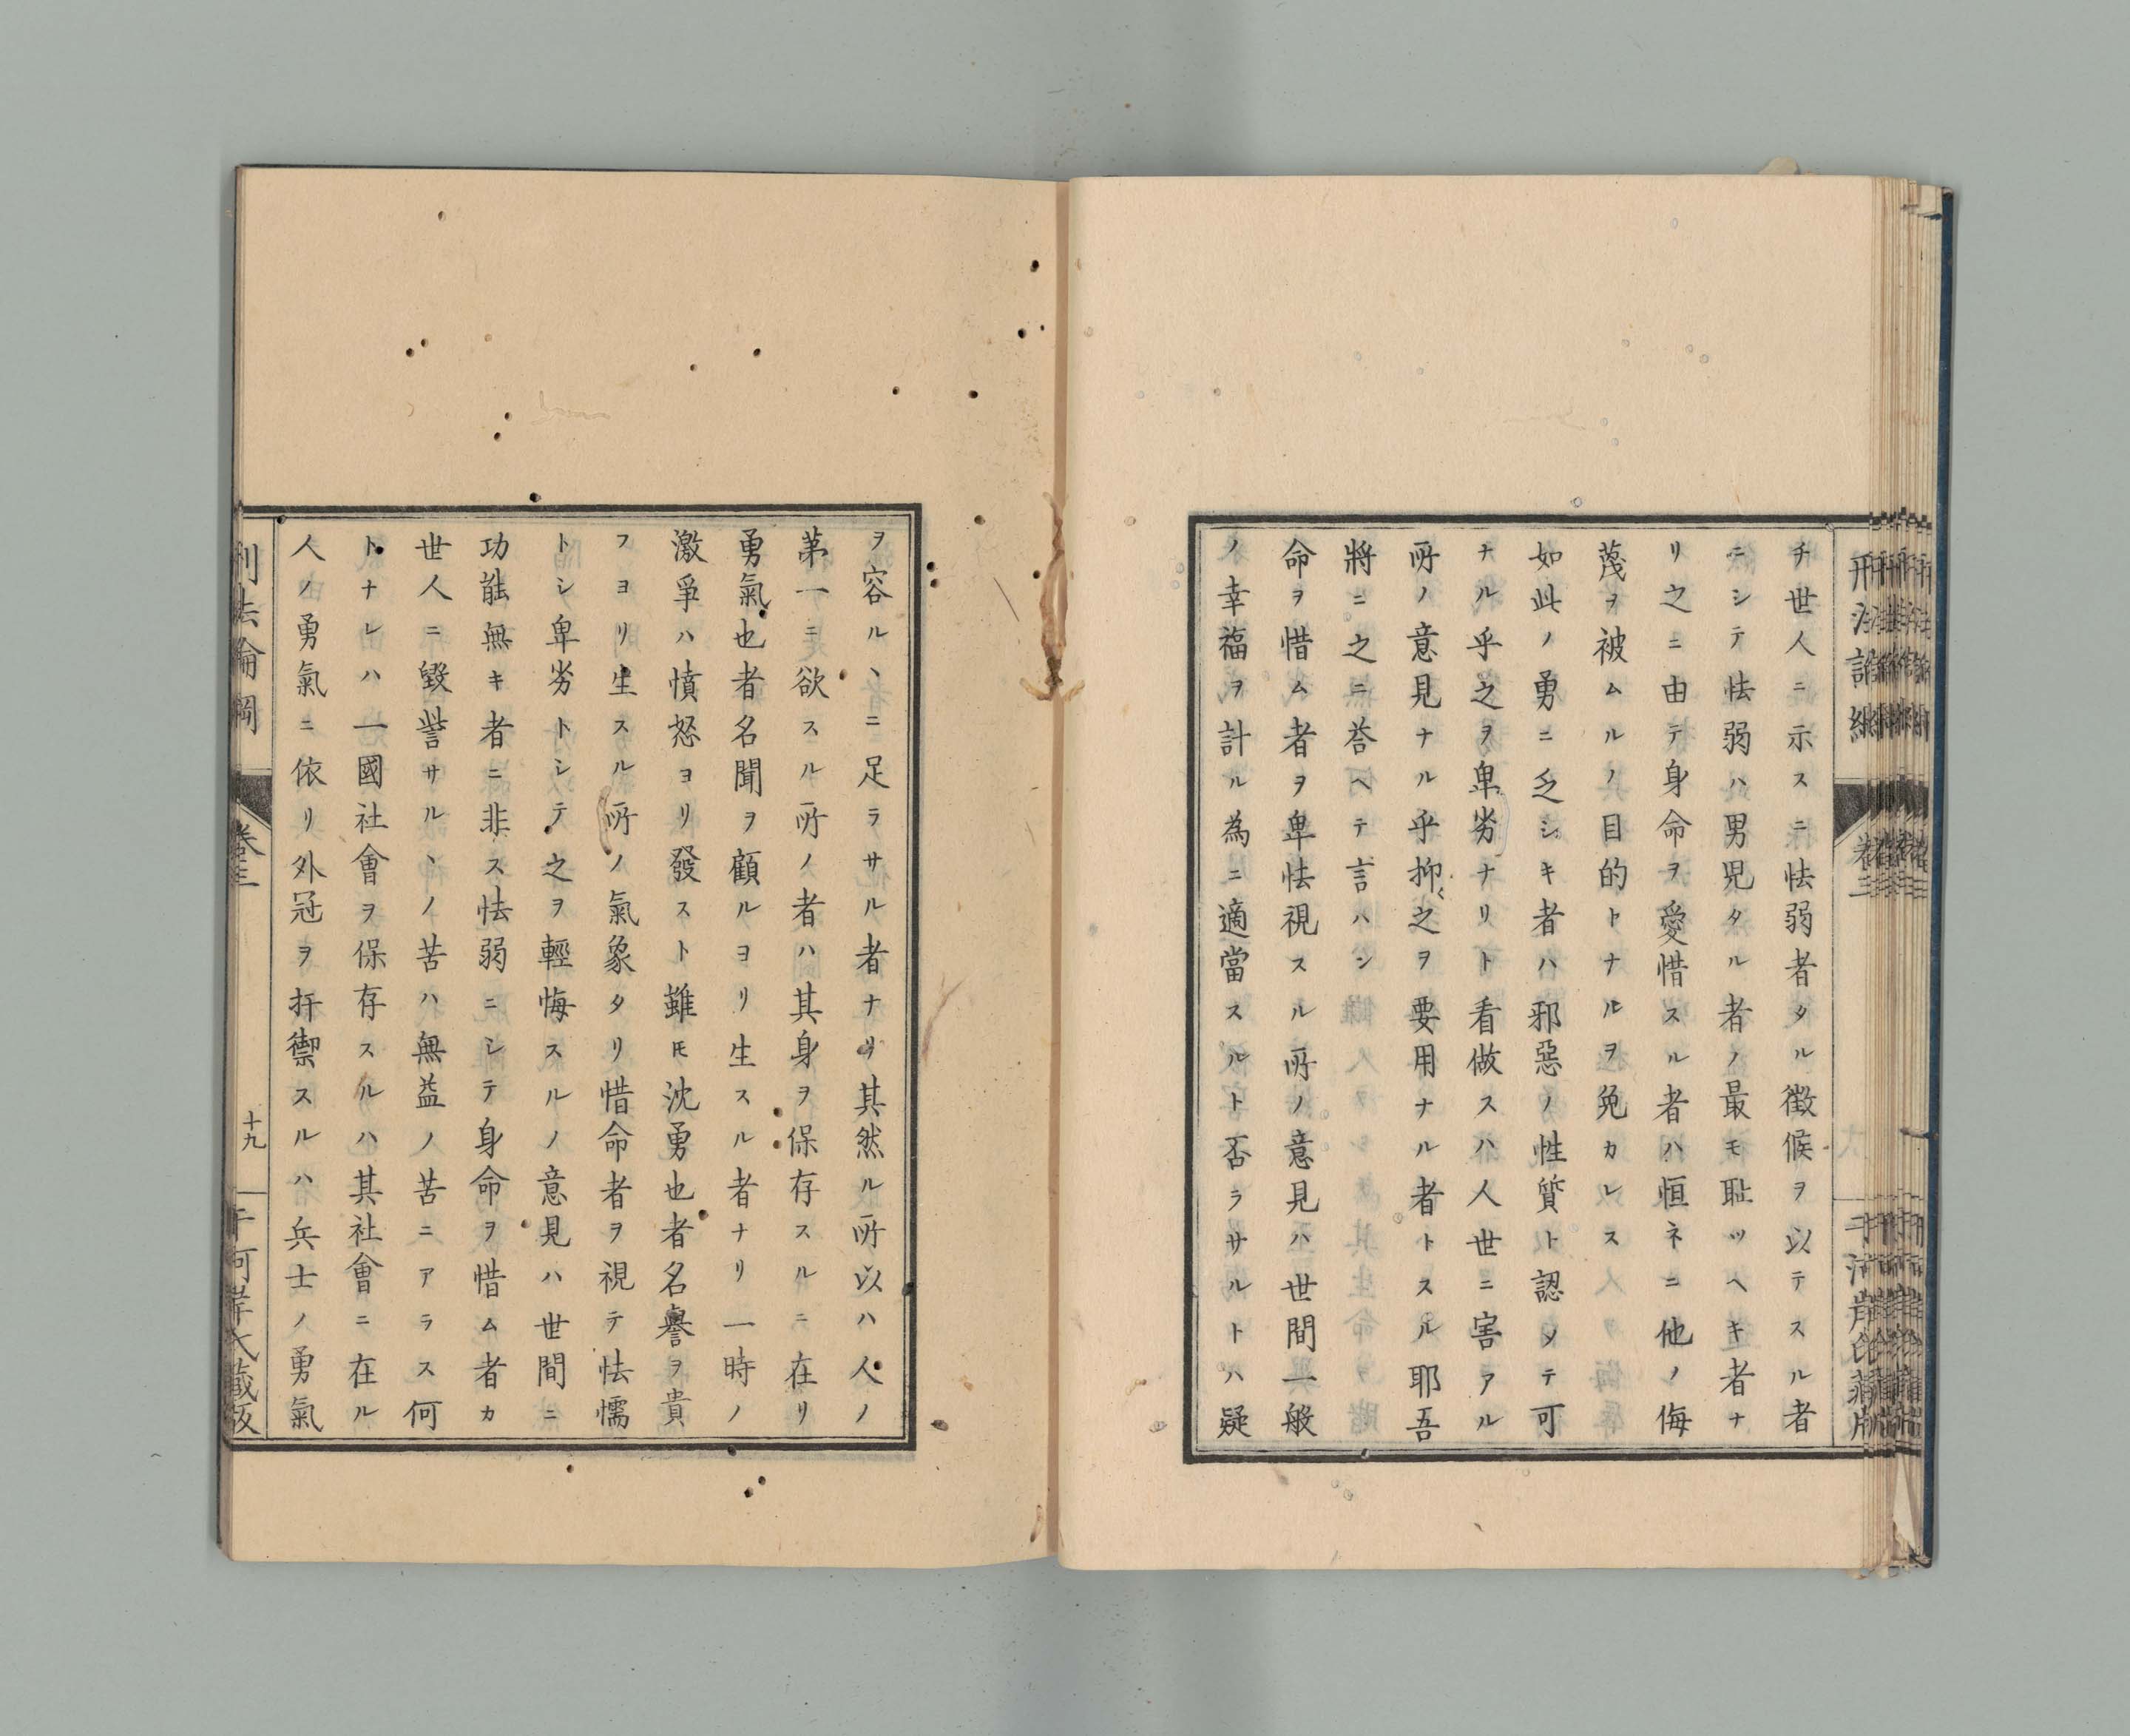 チ世人ニ示スニ怯弱者タル徴候ヲ以テスル者
ニシテ怯弱ハ男児タル者ノ最モ耻ツヘキ者ナ
リ之ニ由テ身命ヲ愛惜スル者ハ恒ネニ他ノ侮
蔑ヲ被ムルノ目的トナルヲ免カレス
如此ノ勇ニ乏シキ者ハ邪惡ノ性質ト認メテ可
ナル乎之ヲ卑劣ナリト看做スハ人世ニ害アル
所ノ意見ナル乎抑〻之ヲ要用ナル者トスル耶吾
將ニ之ニ荅ヘテ言ハン
命ヲ惜ム者ヲ卑怯視スル所ノ意見ハ世間一般
ノ幸福ヲ計ル為ニ適當スルト否ラサルトハ疑
刑法論綱
卷三
ヲ容ルヽニ足ラサル者ナリ其然ル所以ハ人ノ
苐一ニ欲スル所ノ者ハ其身ヲ保存スルニ在リ
勇氣也者名聞ヲ顧ルヨリ生スル者ナリ一時ノ
激爭ハ憤怒ヨリ發スト雖𪜈沈勇也者名譽ヲ貴
フヨリ生スル所ノ氣象タリ惜命者ヲ視テ怯懦
トシ卑劣トシテ之ヲ輕侮スルノ意見ハ世間ニ
功能無キ者ニ非ス怯弱ニシテ身命ヲ惜ム者カ
世人ニ毀訾サルヽノ苦ハ無益ノ苦ニアラス何
トナレハ一國社會ヲ保存スルハ其社會ニ在ル
人ノ勇氣ニ依リ外冦ヲ扞禦スルハ兵士ノ勇氣
刑法論綱
卷三
十九
干河岸氏藏板